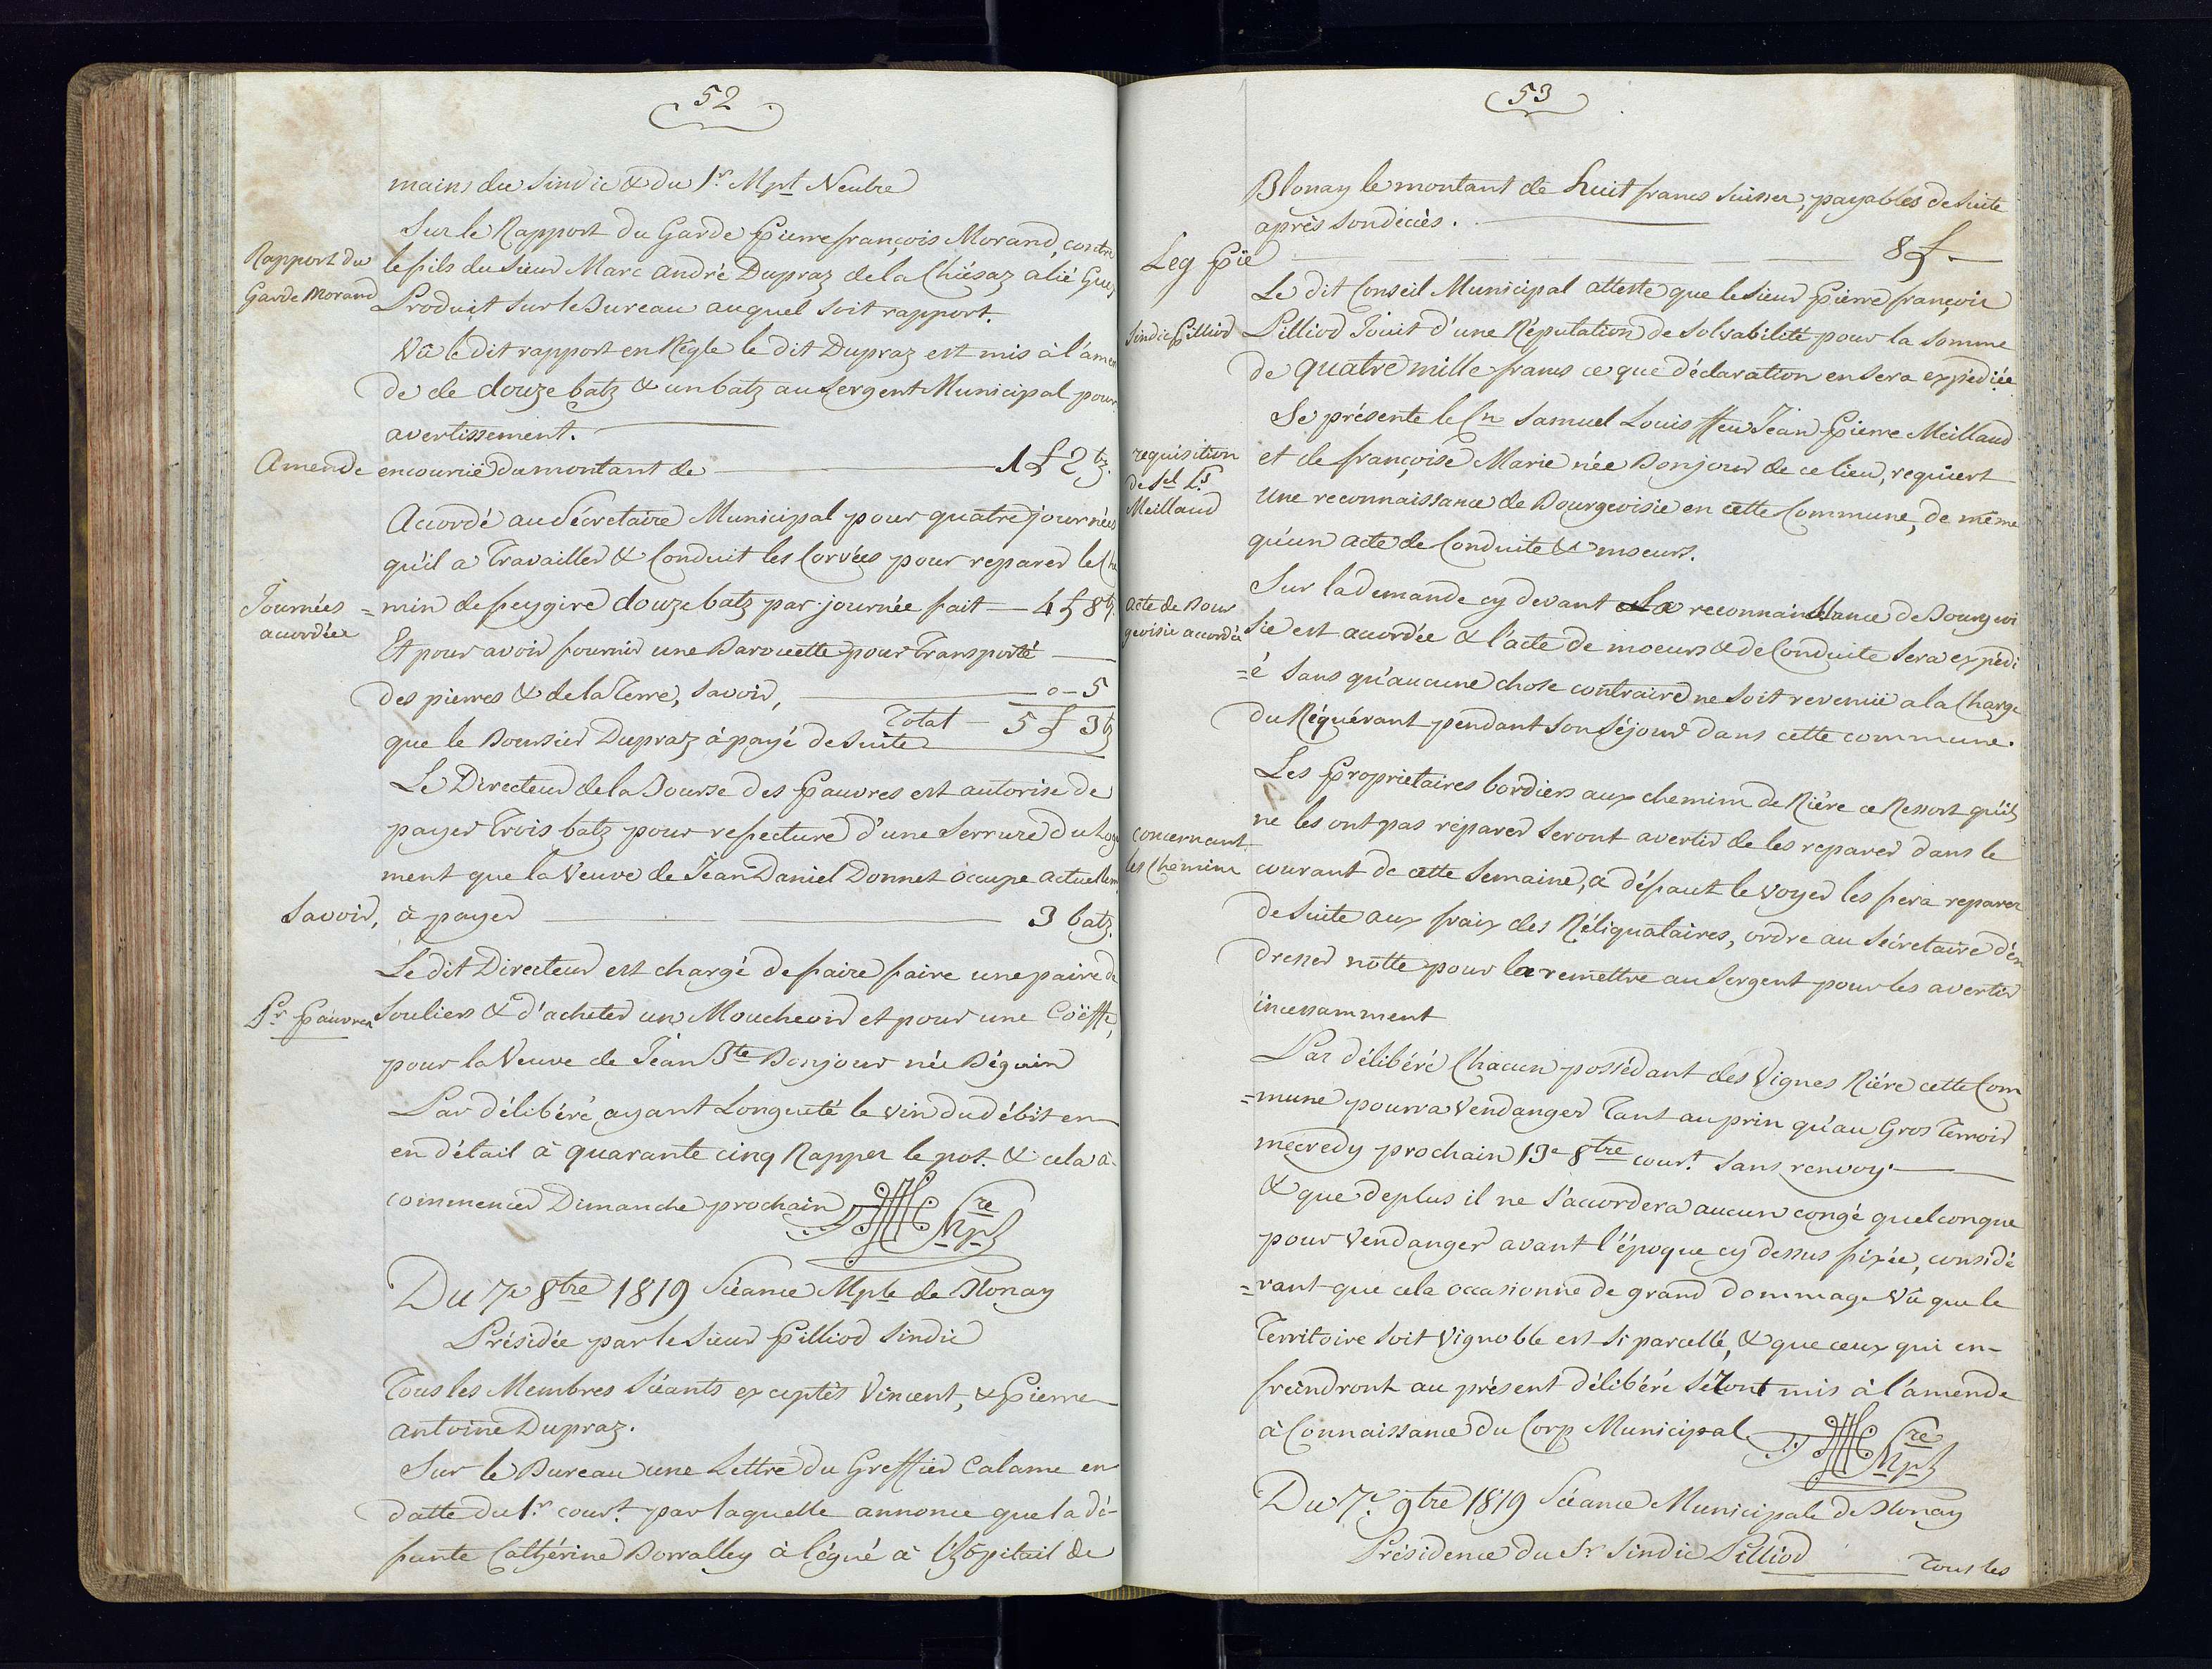 52
mains du Sindic & du 1r. Mpl Neubre
Rapport du
Garde Morand
Sur le Rapport du Garde Pierre françois Morand, contre
le fils du Sieur Marc andré Dupraz de la Chiésaz alié Guex
Produit sur le Bureau auquel soit rapport.
Vû le dit rapport en Régle le dit Dupraz est mis à l'amen
de de douze batz & un batz au Sergent Municipal pour
avertissement.
Amende encourrië du montant de 1 £ 2 bz.
Accordé au Sécretaire Municipal pour quatre journées
qu'il a Travailler & Conduit les Corvées pour reparer le Che
Journées
accordée
=min de feygire douze batz par journée fait 4 £ 8 bz.
Et pour avoir fournir une Barouette pour Transporté
des pierres & de la Terre, Savoir, 0-5
Total 5 £ 3 bz
que le Boursier Dupraz à payé de Suite
Le Directeur de la Bourse des Pauvres est autorise de
payer Trois batz pour refecture d'une Serrure du Loge
ment que la Veuve de Jean Daniel Donnet occupe actuellem
Savoir, à payer 3 batz.
Le dit Directeur est chargé de faire faire une paire de
Pr. Pauvres
Souliers & d'acheter un Mouchoir et pour une Coëffe,
pour la Veuve de Jean Bte Bonjour née Béguin
Par délibéré ayant Longueté le vin du débit en
en détail à quarante cinq Rappes le pot. & cela à
commencer Dimanche prochain
Sre
Mpl
Du 7e 8tre 1819 Séance Mple de Blonay
Présidée par le Sieur Pilliod Sindic
Tous les Membres Séants exceptés Vincent, & Pierre
antoine Dupraz.
Sur le Bureau une Lettre du Greffier Calame en
datte du 1r. cour.t par laquelle annonce que la dé-
funte Cathérine Borralley à légué à l'hôpitail de
53
Blonay le montant de huit francs Suisses, payables de Suite
après Son décès.
Leg Pie 8 £.
Le dit Conseil Municipal atteste que le Sieur Pierre françois
Sindic Pilliod
Pilliod Jouit d'une Réputation de Solvabilité pour la Somme
de quatre mille francs ce que déclaration en sera expédiée
Se présente le Cn Samuel Louis ffeu Jean Pierre Meillaud
requisition
de Sel Ls
Meillaud
et de françoise Marie née Bonjour de ce lieu, requiert
Une reconnaissance de Bourgeoisie en cette Commune, de même
qu'un acte de Conduite & moeurs.
Acte de Bour
geoisie accordée
Sur la demande cy devant la reconnaissance de Bourgeoi
Sie est accordée & l'acte de moeurs & de Conduite Sera expédi
=é Sans qu'aucune chose contraire ne soit revenüe a la Charge
du Réquérant pendant Son Séjour dans cette commune.
Les Proprietaires bordiers aux chemins de Riére ce Ressort qu'ils
concernant
les Chemins
ne les ont pas réparer Seront avertir de les reparer dans le
courant de cette Semaine, a défaut le voyer les fera reparer
de Suite aux fraix des Réliquataires, ordre au Sécretaire d'en
dresser notte pour la remettre au Sergent pour les avertir
incessamment
Par délibéré Chacun possédant des Vignes Riére cette Com
=mune pourra Vendanger Tant au prin qu'au Gros Terroir
mecredy prochain 13e 8tre cour.t Sans renvoy.
& que deplus il ne S'accordera aucun congé quelconque
pour Vendanger avant l'époque cy dessus fixée, considé
=rant que cela occasionne de grand dommage Vû que le
Territoire soit Vignoble est Si parcellé, & que ceux qui en-
freindront au présent délibéré Seront mis à l'amende
à Connaissance du Corp Municipal
Sre
Mpl
Du 7e. 9tre 1819 Séance Municipale de Blonay
Présidence du Sr. Sindic Pilliod Tous les